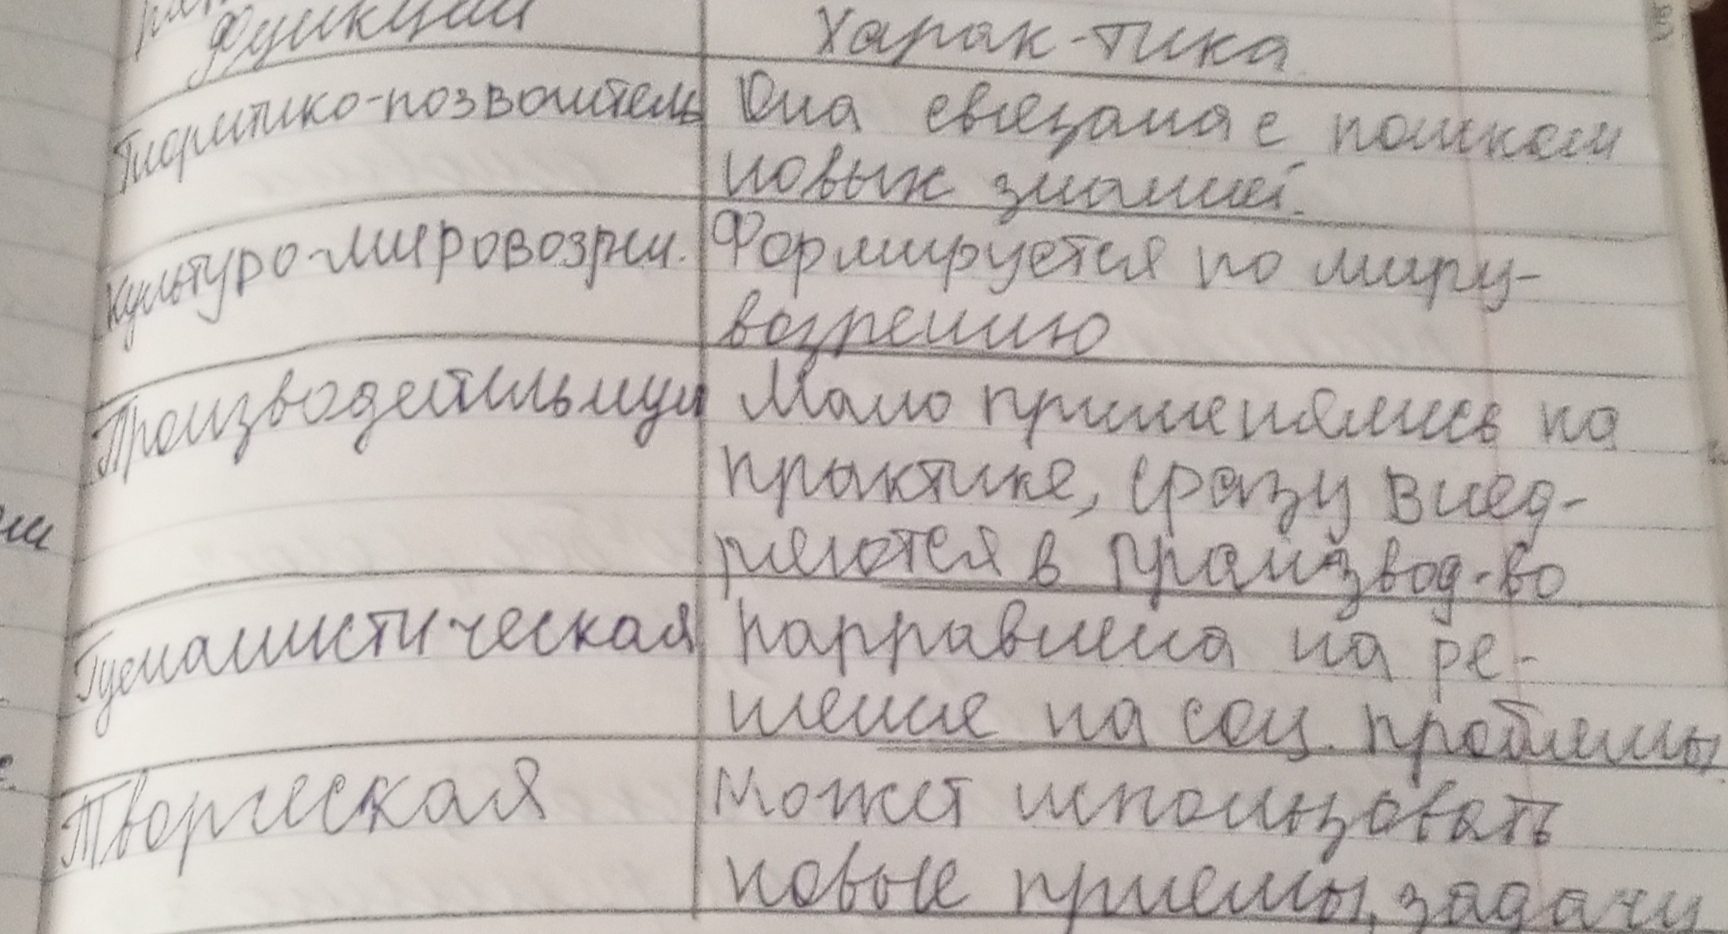 Функции Харак-тика
Теоритико-позвоштель Она связана с поиском
новых знаний.
культуро-мировозрен. Формируется по миру-
возрению
Производейтильную Мало применялись на
практике, сразу внед-
ряются в производ-во
Гуеманистическая нарравлена на ре-
шение на соц. проблемы
Творческая может использовать
новые приемы, задачи